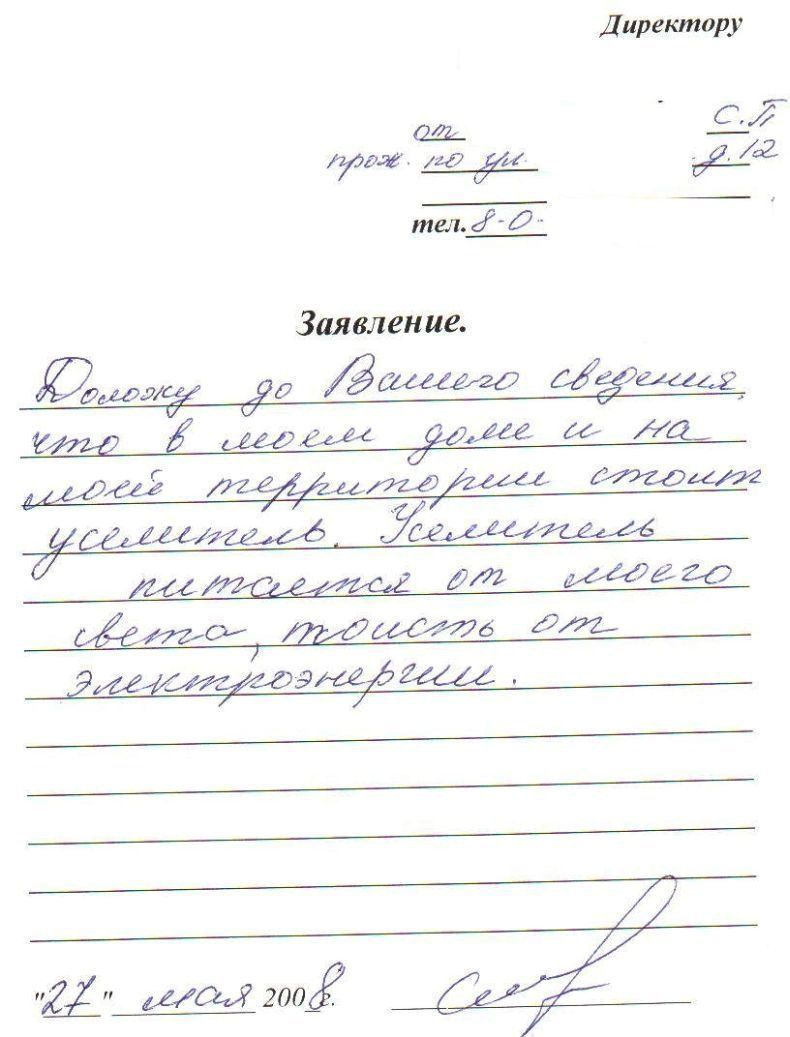 Директору
от С.П
прож. по ул. д.12
тел. 8-0-
Заявление.
Доложу до Вашего сведения,
что в моем доме и на
моей территории стоит
уселитель. Уселитель
питается от моего
света, тоисть от
электроэнергии.
"27" мая 2008г.